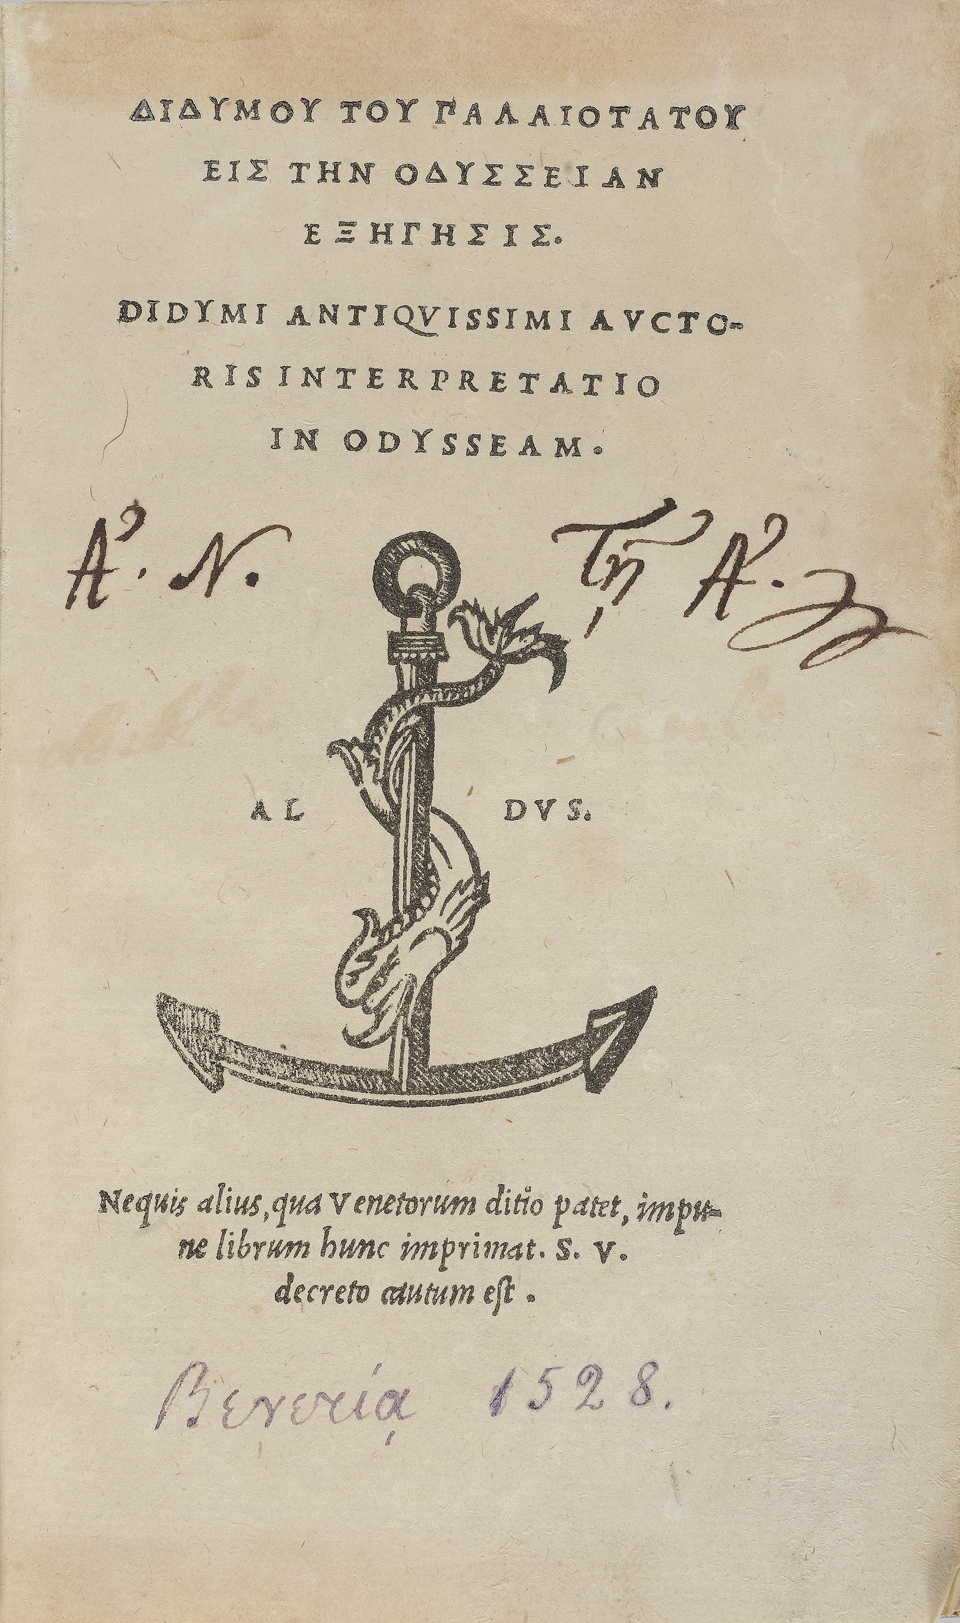 ΔΙΔΥΜΟΥ ΤΟΥ ΠΑΛΑΙΟΤΑΤΟΥ
ΕΙΣ ΤΗΝ ΟΔΥΣΣΕΙΑΝ
ΕΞΗΓΗΣΙΣ.
DIDYMI ANTIQVISSIMI AVCTO-
RIS INTERPRETATIO
IN ODYSSEAM.
Α. Ν. Τῇ Α.
AL DVS.
Nequis alius, qua Venetorum ditio patet, impu-
ne librum hunc imprimat. S. V.
decreto cautum est.
Βενετίᾳ 1528.